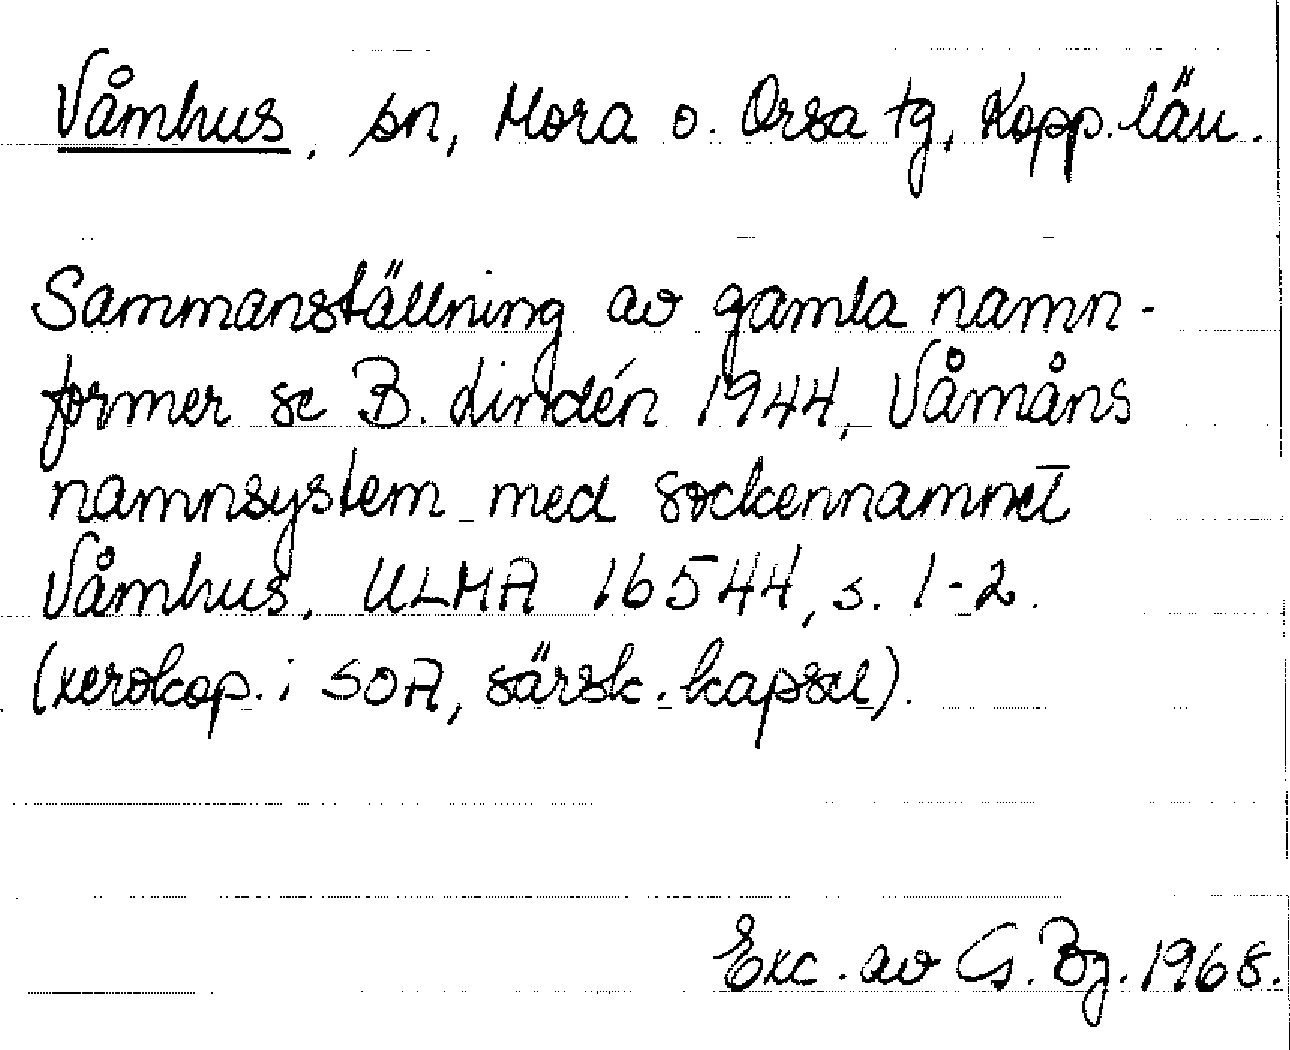 Våmhus, sn, Mora o. Orsa tg, Kopp. län.
Sammanställning av gamla namn-
former se B. Lindén 1944, Våmåns
namnsystem med sockennamnet
Våmhus, ULMA 16544, s. 1-2.
(xerokop. i SOA, särsk. kapsel).
Exc. av G. Bg. 1968.